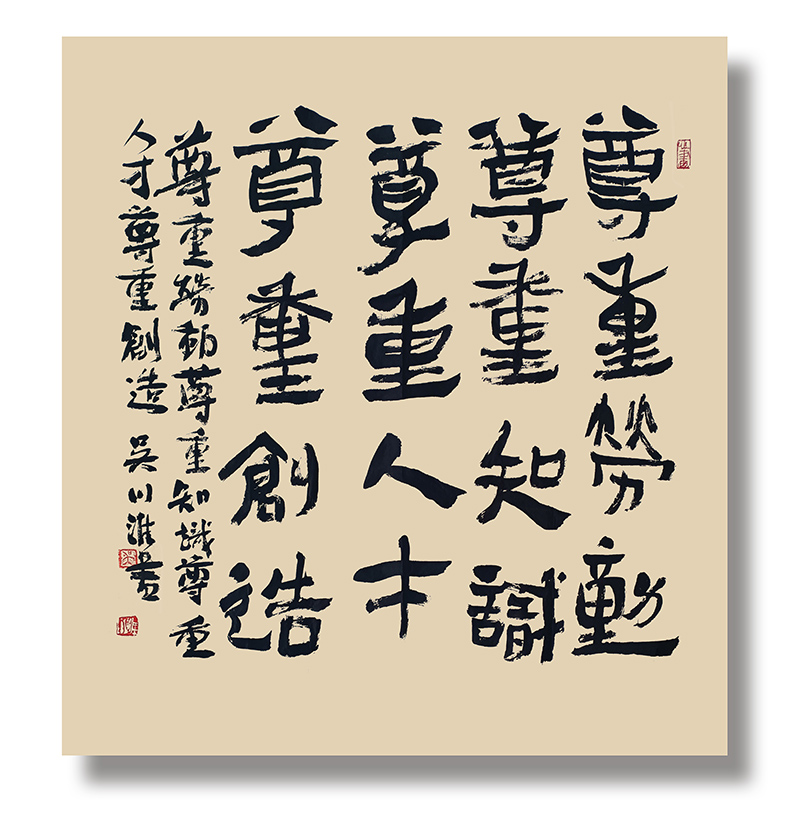 尊重勞動
尊重知識
尊重人才
尊重創造
尊重勞動尊重知識尊重
人才尊重創造 吳川淮書